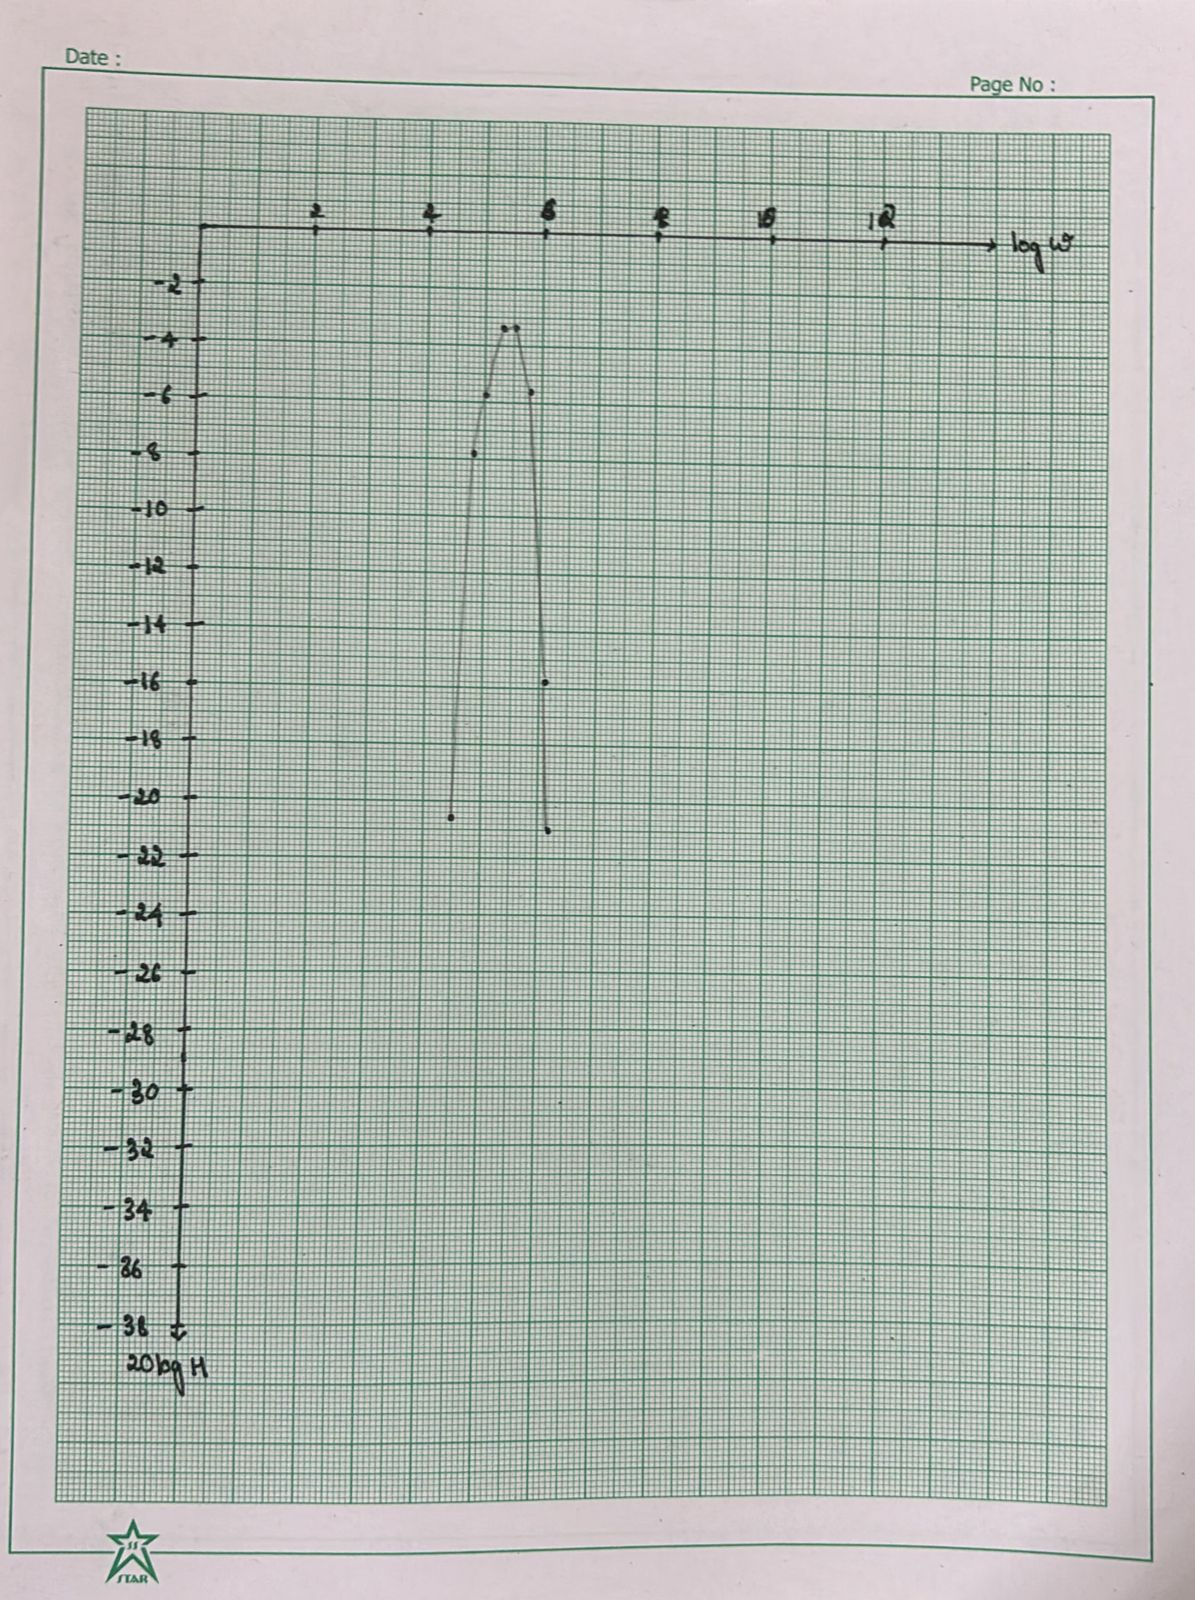 Date :
Page No :
2 4 6 8 10 12
log ω
-2
-4
-6
-8
-10
-12
-14
-16
-18
-20
-22
-24
-26
-28
-30
-32
-34
-36
-38
20log H
SS
STAR